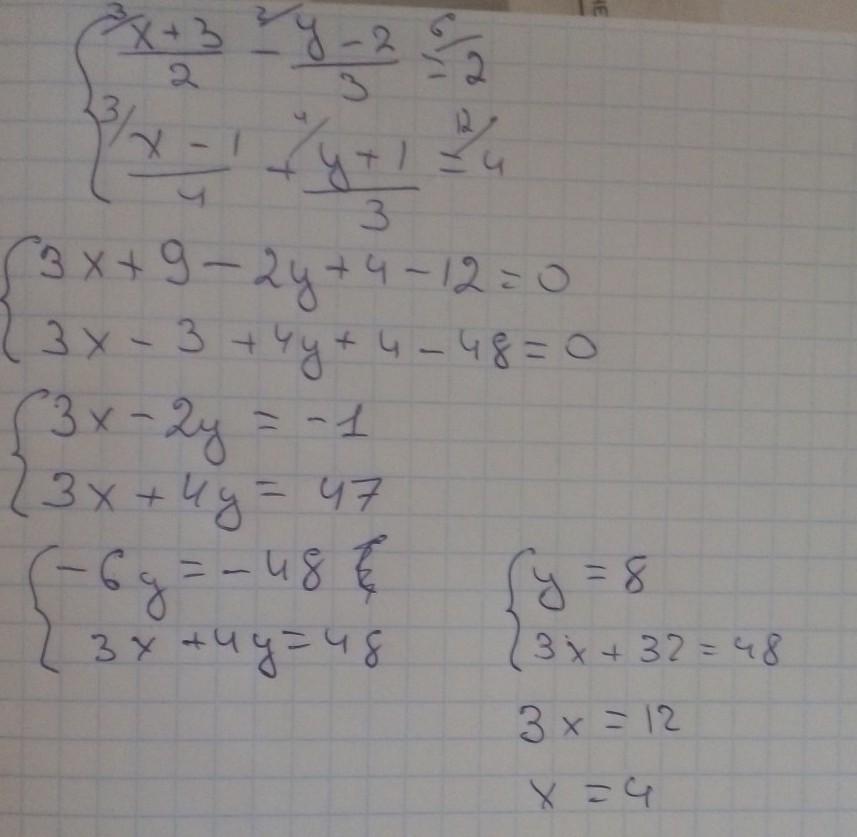 { 3/ (x + 3)/2 - 2/ (y - 2)/3 = 6/ 2
3/ (x - 1)/4 + 4/ (y + 1)/3 = 12/ 4
{ 3x + 9 - 2y + 4 - 12 = 0
3x - 3 + 4y + 4 - 48 = 0
{ 3x - 2y = -1
3x + 4y = 47
{ -6y = -48
3x + 4y = 48
{ y = 8
3x + 32 = 48
3x = 12
x = 4